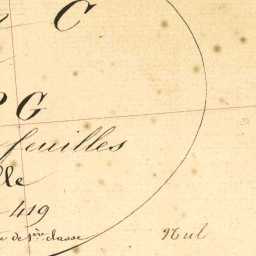 C
PG
feuilles
lle
419
de 1ère classe
Nul